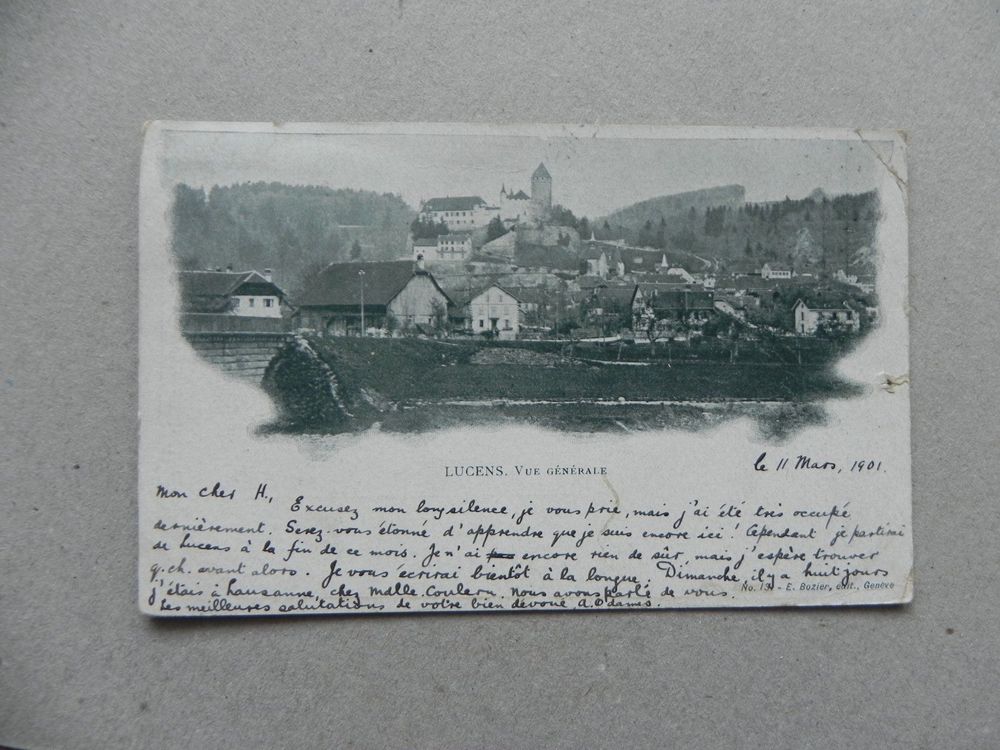 LUCENS. VUE GÉNÉRALE
le 11 Mars, 1901.
Mon cher H.,
Excusez mon long silence, je vous prie, mais j'ai été très occupé
dernièrement. Serez-vous étonné d'apprendre que je suis encore ici! Cependant je partirai
de Lucens à la fin de ce mois. Je n'ai encore rien de sûr, mais j'espère trouver
q.ch. avant alors. Je vous écrirai bientôt à la longue. Dimanche, il y a huit jours
j'étais à Lausanne, chez Mdlle. Nous avons parlé de vous.
No. 13. - E. Bozier, édit., Genève
Les meilleures salutations de votre bien dévoué A. Adams.